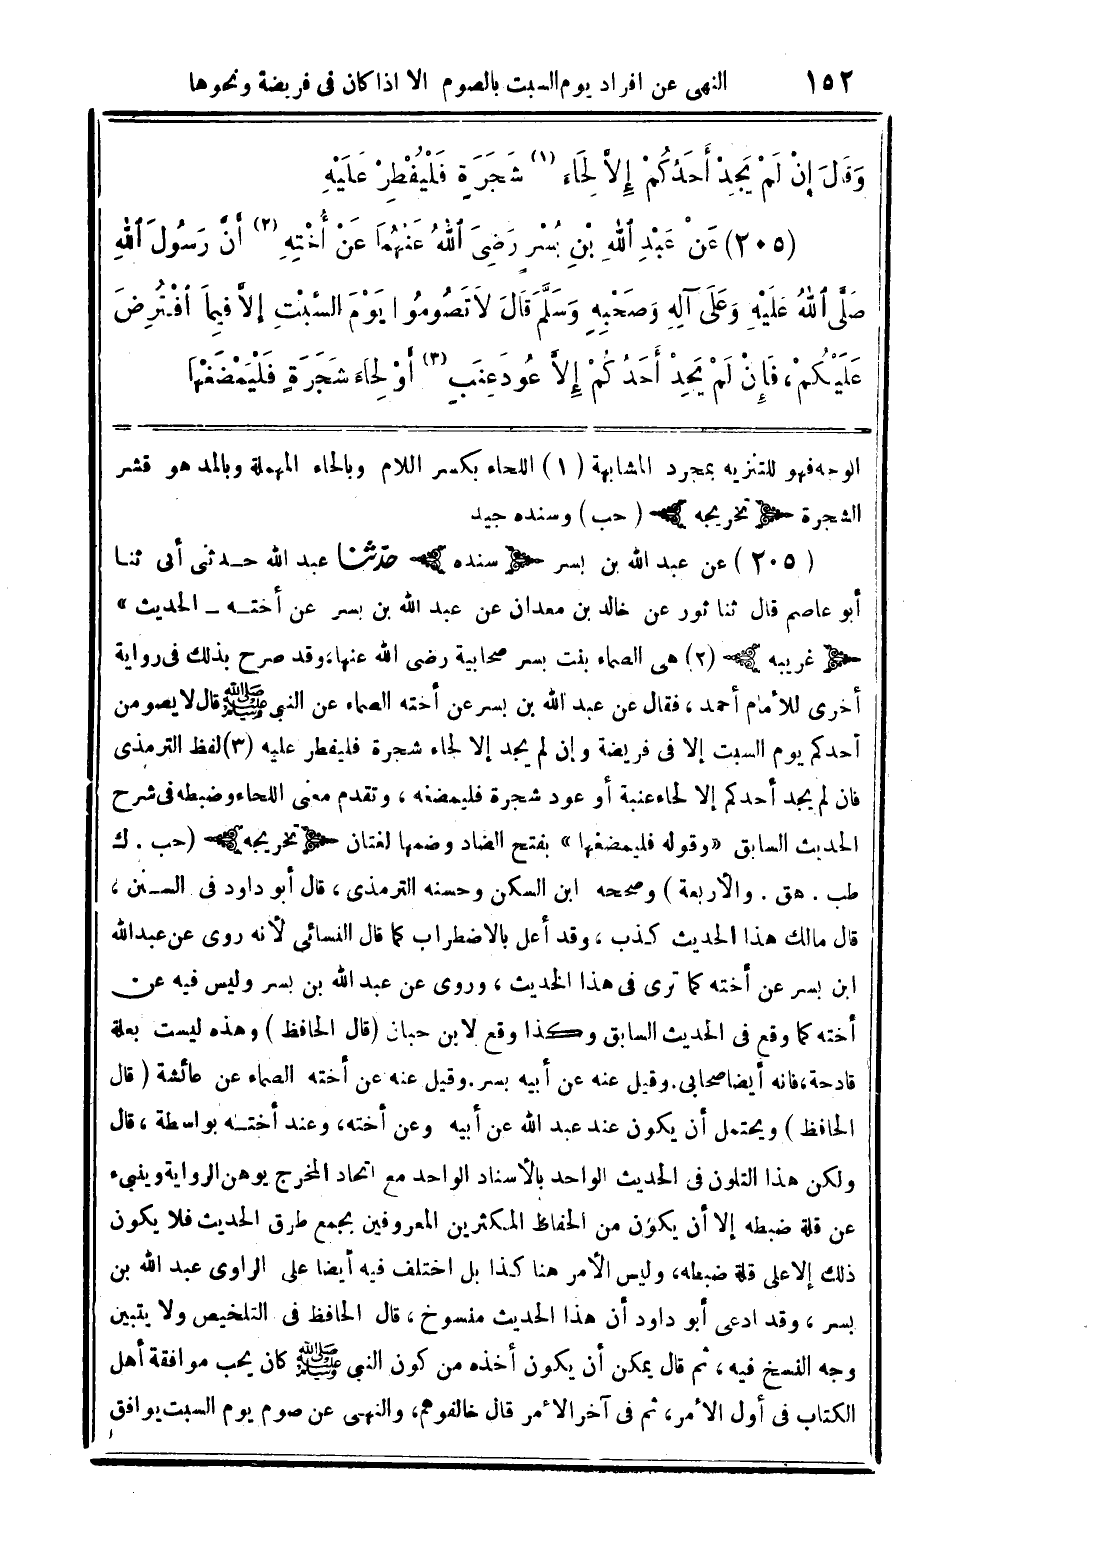 ١٥٢ النهى عن افراد يوم السبت بالصوم الا اذا كان فى فريضة ونحوها
وَقَالَ إِنْ لَمْ يَجِدْ أَحَدُكُمْ إِلاَّ لِحَاءَ (١) شَجَرَةٍ فَلْيُفْطِرْ عَلَيْهِ
(٢٠٥) عَنْ عَبْدِ اللهِ بْنِ بُسْرٍ رَضِىَ اللهُ عَنْهُمَا عَنْ أُخْتِهِ (٢) أَنَّ رَسُولَ اللهِ
صَلَّى اللهُ عَلَيْهِ وَعَلَى آلِهِ وَصَحْبِهِ وَسَلَّمَ قَالَ لاَ تَصُومُوا يَوْمَ السَّبْتِ إِلاَّ فِيمَا افْتُرِضَ
عَلَيْكُمْ، فَإِنْ لَمْ يَجِدْ أَحَدُكُمْ إِلاَّ عُودَ عِنَبٍ (٣) أَوْ لِحَاءَ شَجَرَةٍ فَلْيَمْضَغْهَا
الوجه فهو للتنزيه بمجرد المشابهة (١) اللحاء بكسر اللام وبالحاء المهملة وبالمد هو قشر
الشجرة ﴿ تخريجه ﴾ (حب) وسنده جيد
(٢٠٥) عن عبد الله بن بسر ﴿ سنده ﴾ حدّثنا عبد الله حدثنى أبى ثنا
أبو عاصم قال ثنا ثور عن خالد بن معدان عن عبد الله بن بسر عن أخته ــ الحديث »
﴿ غريبه ﴾ (٢) هى الصماء بنت بسر صحابية رضى الله عنها، وقد صرح بذلك فى رواية
أخرى للأمام أحمد، فقال عن عبد الله بن بسر عن أخته الصماء عن النبى ﷺ قال لا يصومن
أحدكم يوم السبت إلا فى فريضة وإن لم يجد إلا لحاء شجرة فليفطر عليه (٣) لفظ الترمذى
فان لم يجد أحدكم إلا لحاء عنبة أو عود شجرة فليمضغه، وتقدم معنى اللحاء وضبطه فى شرح
الحديث السابق «وقوله فليمضغها» بفتح الضاد وضمها لغتان ﴿ تخريجه ﴾ (حب . ك
طب . هق . والأربعة) وصححه ابن السكن وحسنه الترمذى، قال أبو داود فى السنن،
قال مالك هذا الحديث كذب، وقد أعل بالاضطراب كما قال النسائى لأنه روى عن عبد الله
ابن بسر عن أخته كما ترى فى هذا الحديث، وروى عن عبد الله بن بسر وليس فيه عن
أخته كما وقع فى الحديث السابق وكذا وقع لابن حبان (قال الحافظ) وهذه ليست بعلة
قادحة، فانه أيضا صحابى. وقيل عنه عن أبيه بسر. وقيل عنه عن أخته الصماء عن عائشة (قال
الحافظ) ويحتمل أن يكون عند عبد الله عن أبيه وعن أخته، وعند أخته بواسطة، قال
ولكن هذا التلون فى الحديث الواحد بالأسناد الواحد مع اتحاد المخرج يوهن الرواية وينبىء
عن قلة ضبطه إلا أن يكون من الحفاظ المكثرين المعروفين بجمع طرق الحديث فلا يكون
ذلك إلا على قلة ضبطه، وليس الأمر هنا كذا بل اختلف فيه أيضا على الراوى عبد الله بن
بسر، وقد ادعى أبو داود أن هذا الحديث منسوخ، قال الحافظ فى التلخيص ولا يتبين
وجه النسخ فيه، ثم قال يمكن أن يكون أخذه من كون النبى ﷺ كان يحب موافقة أهل
الكتاب فى أول الأمر، ثم فى آخر الأمر قال خالفوهم، والنهى عن صوم يوم السبت يوافق